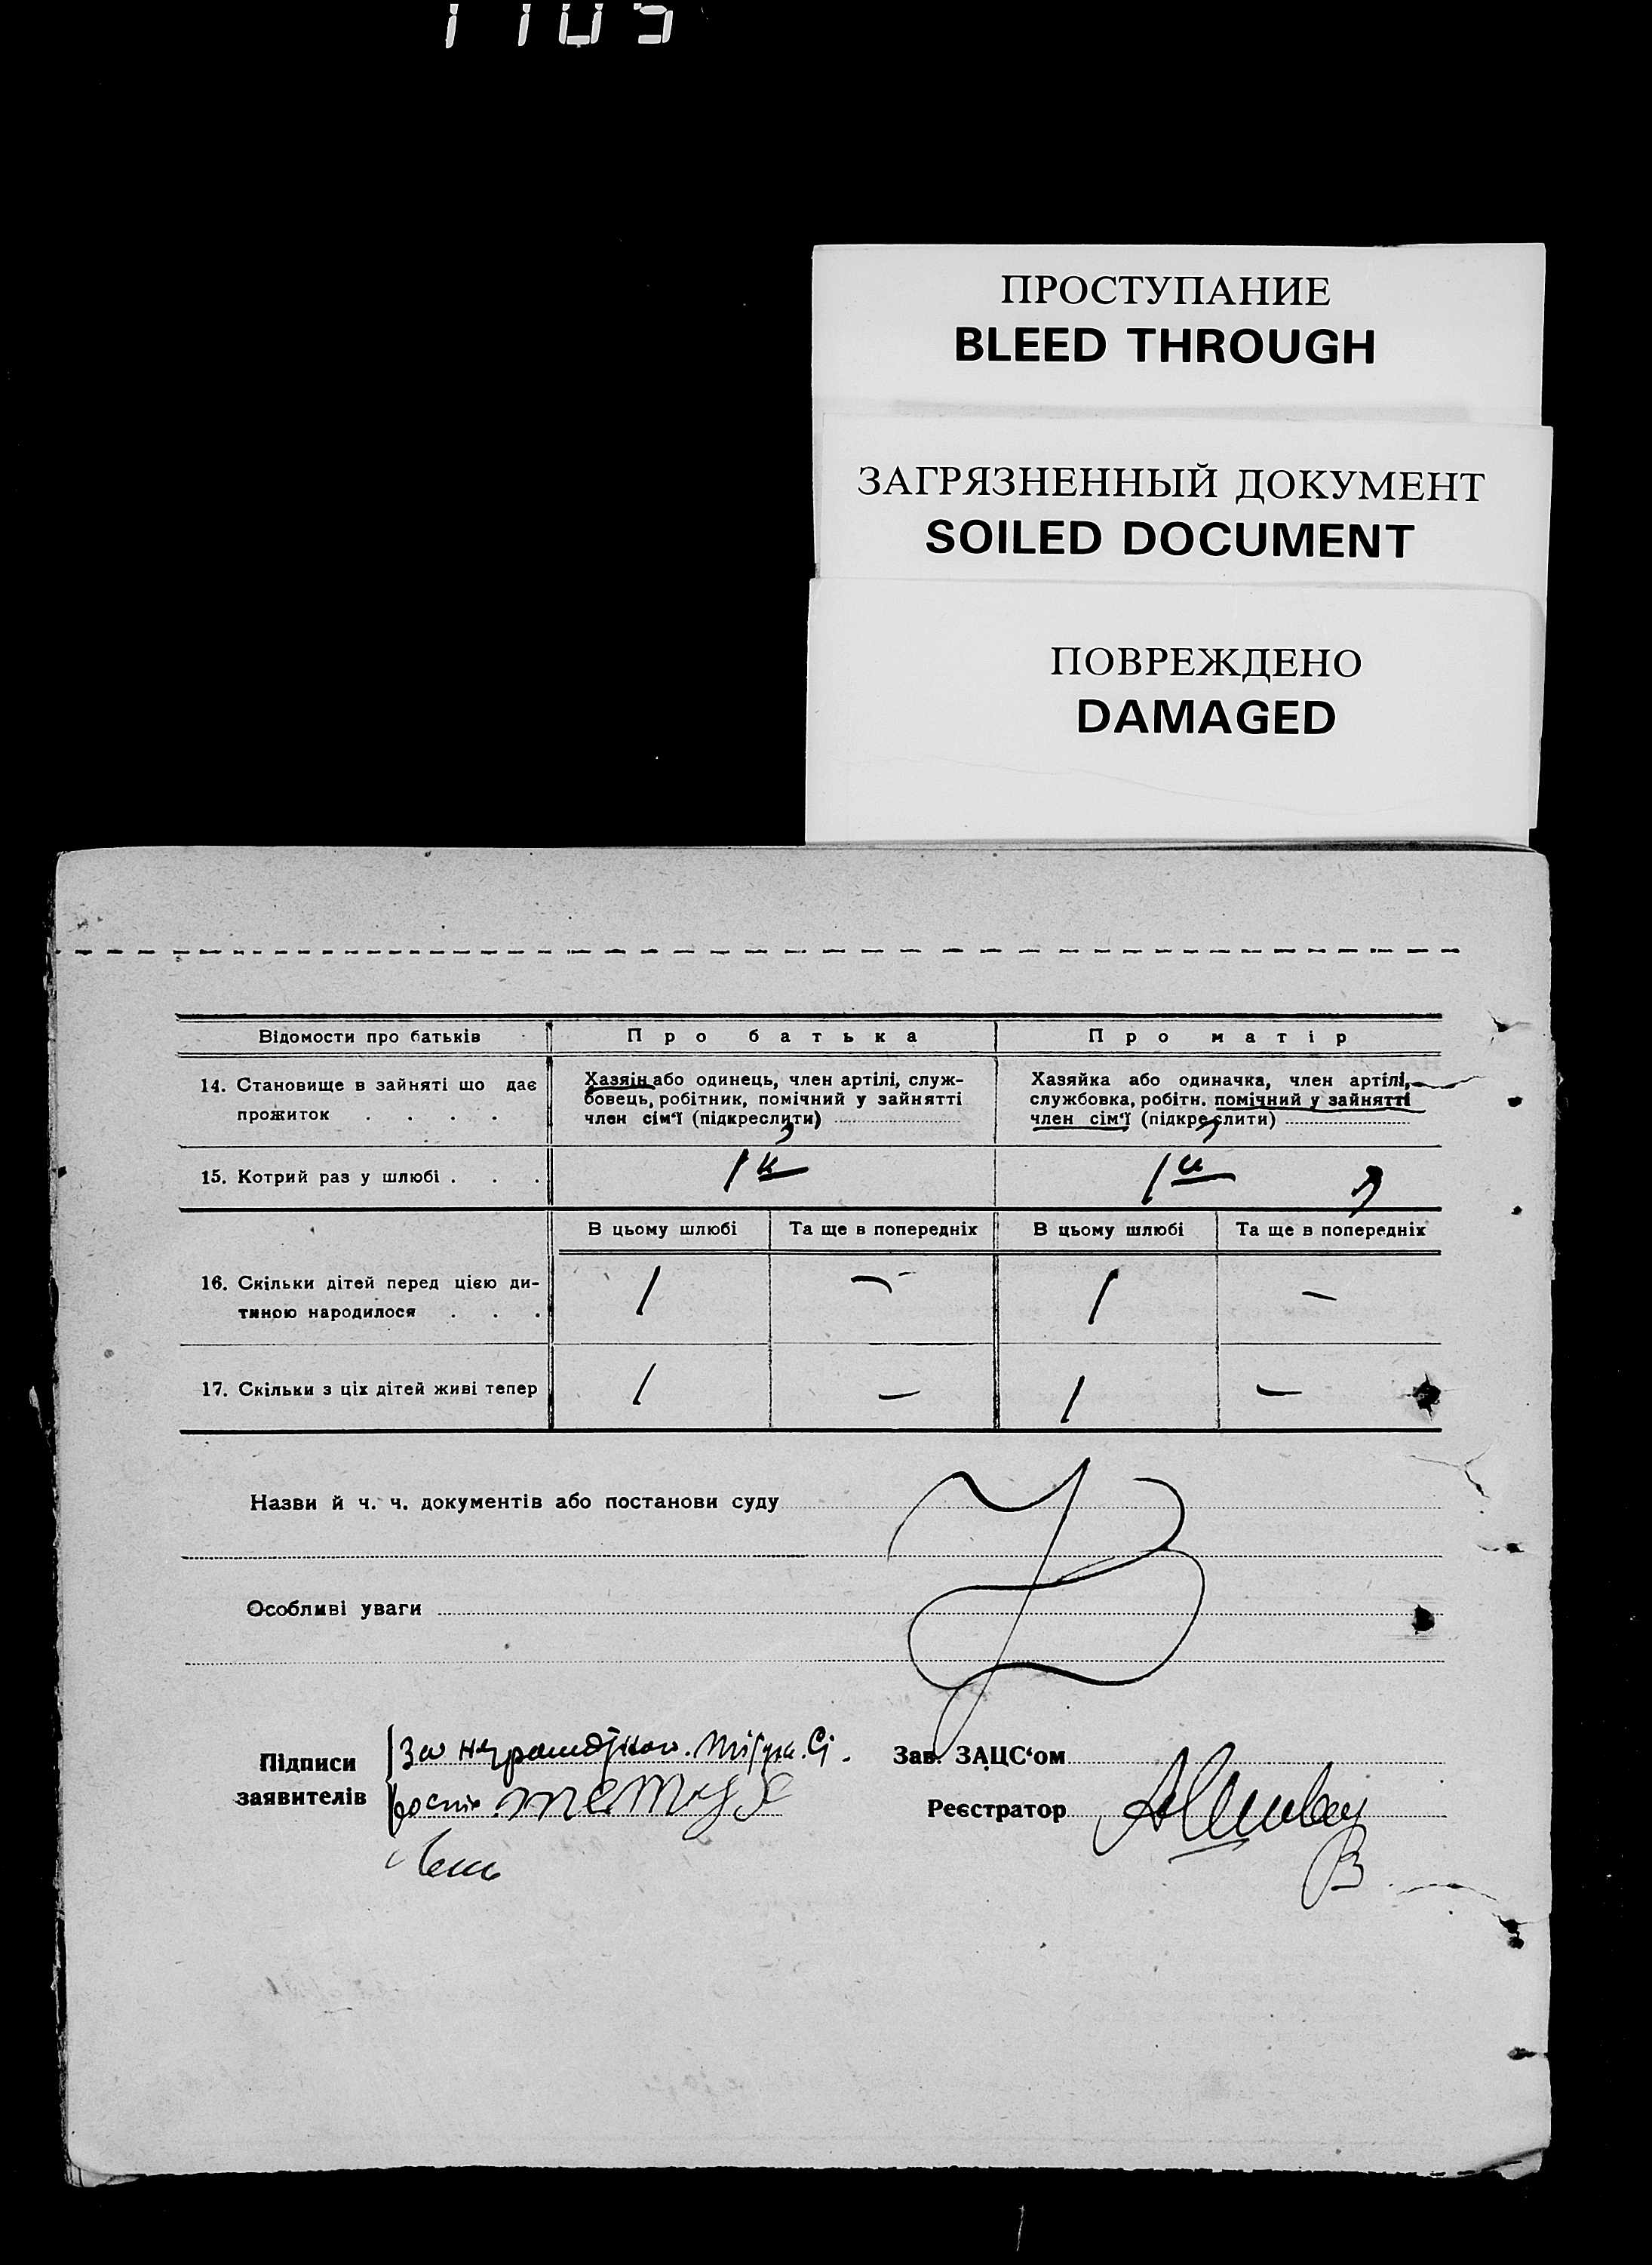 1105
ПРОСТУПАНИЕ
BLEED THROUGH
ЗАГРЯЗНЕННЫЙ ДОКУМЕНТ
SOILED DOCUMENT
ПОВРЕЖДЕНО
DAMAGED
Відомости про батьків
Про батька
Про матір
14. Становище в зайняті що дає
прожиток . . . .
Хазяін або одинець, член артілі, служ-
бовець, робітник, помічний у зайнятті
член сім'ї (підкреслити)
Хазяйка або одиначка, член артілі,
службовка, робітн. помічний у зайнятті
член сім'ї (підкреслити)
15. Котрий раз у шлюбі . . .
1й
1й
В цьому шлюбі
Та ще в попередніх
В цьому шлюбі
Та ще в попередніх
16. Скільки дітей перед цією ди-
тиною народилося . . .
1 — 1 —
17. Скільки з ціх дітей живі тепер
1 — 1 —
Назви й ч. ч. документів або постанови суду
Особливі уваги
Підписи
заявителів
За
Зав. ЗАЦС'ом
Реєстратор